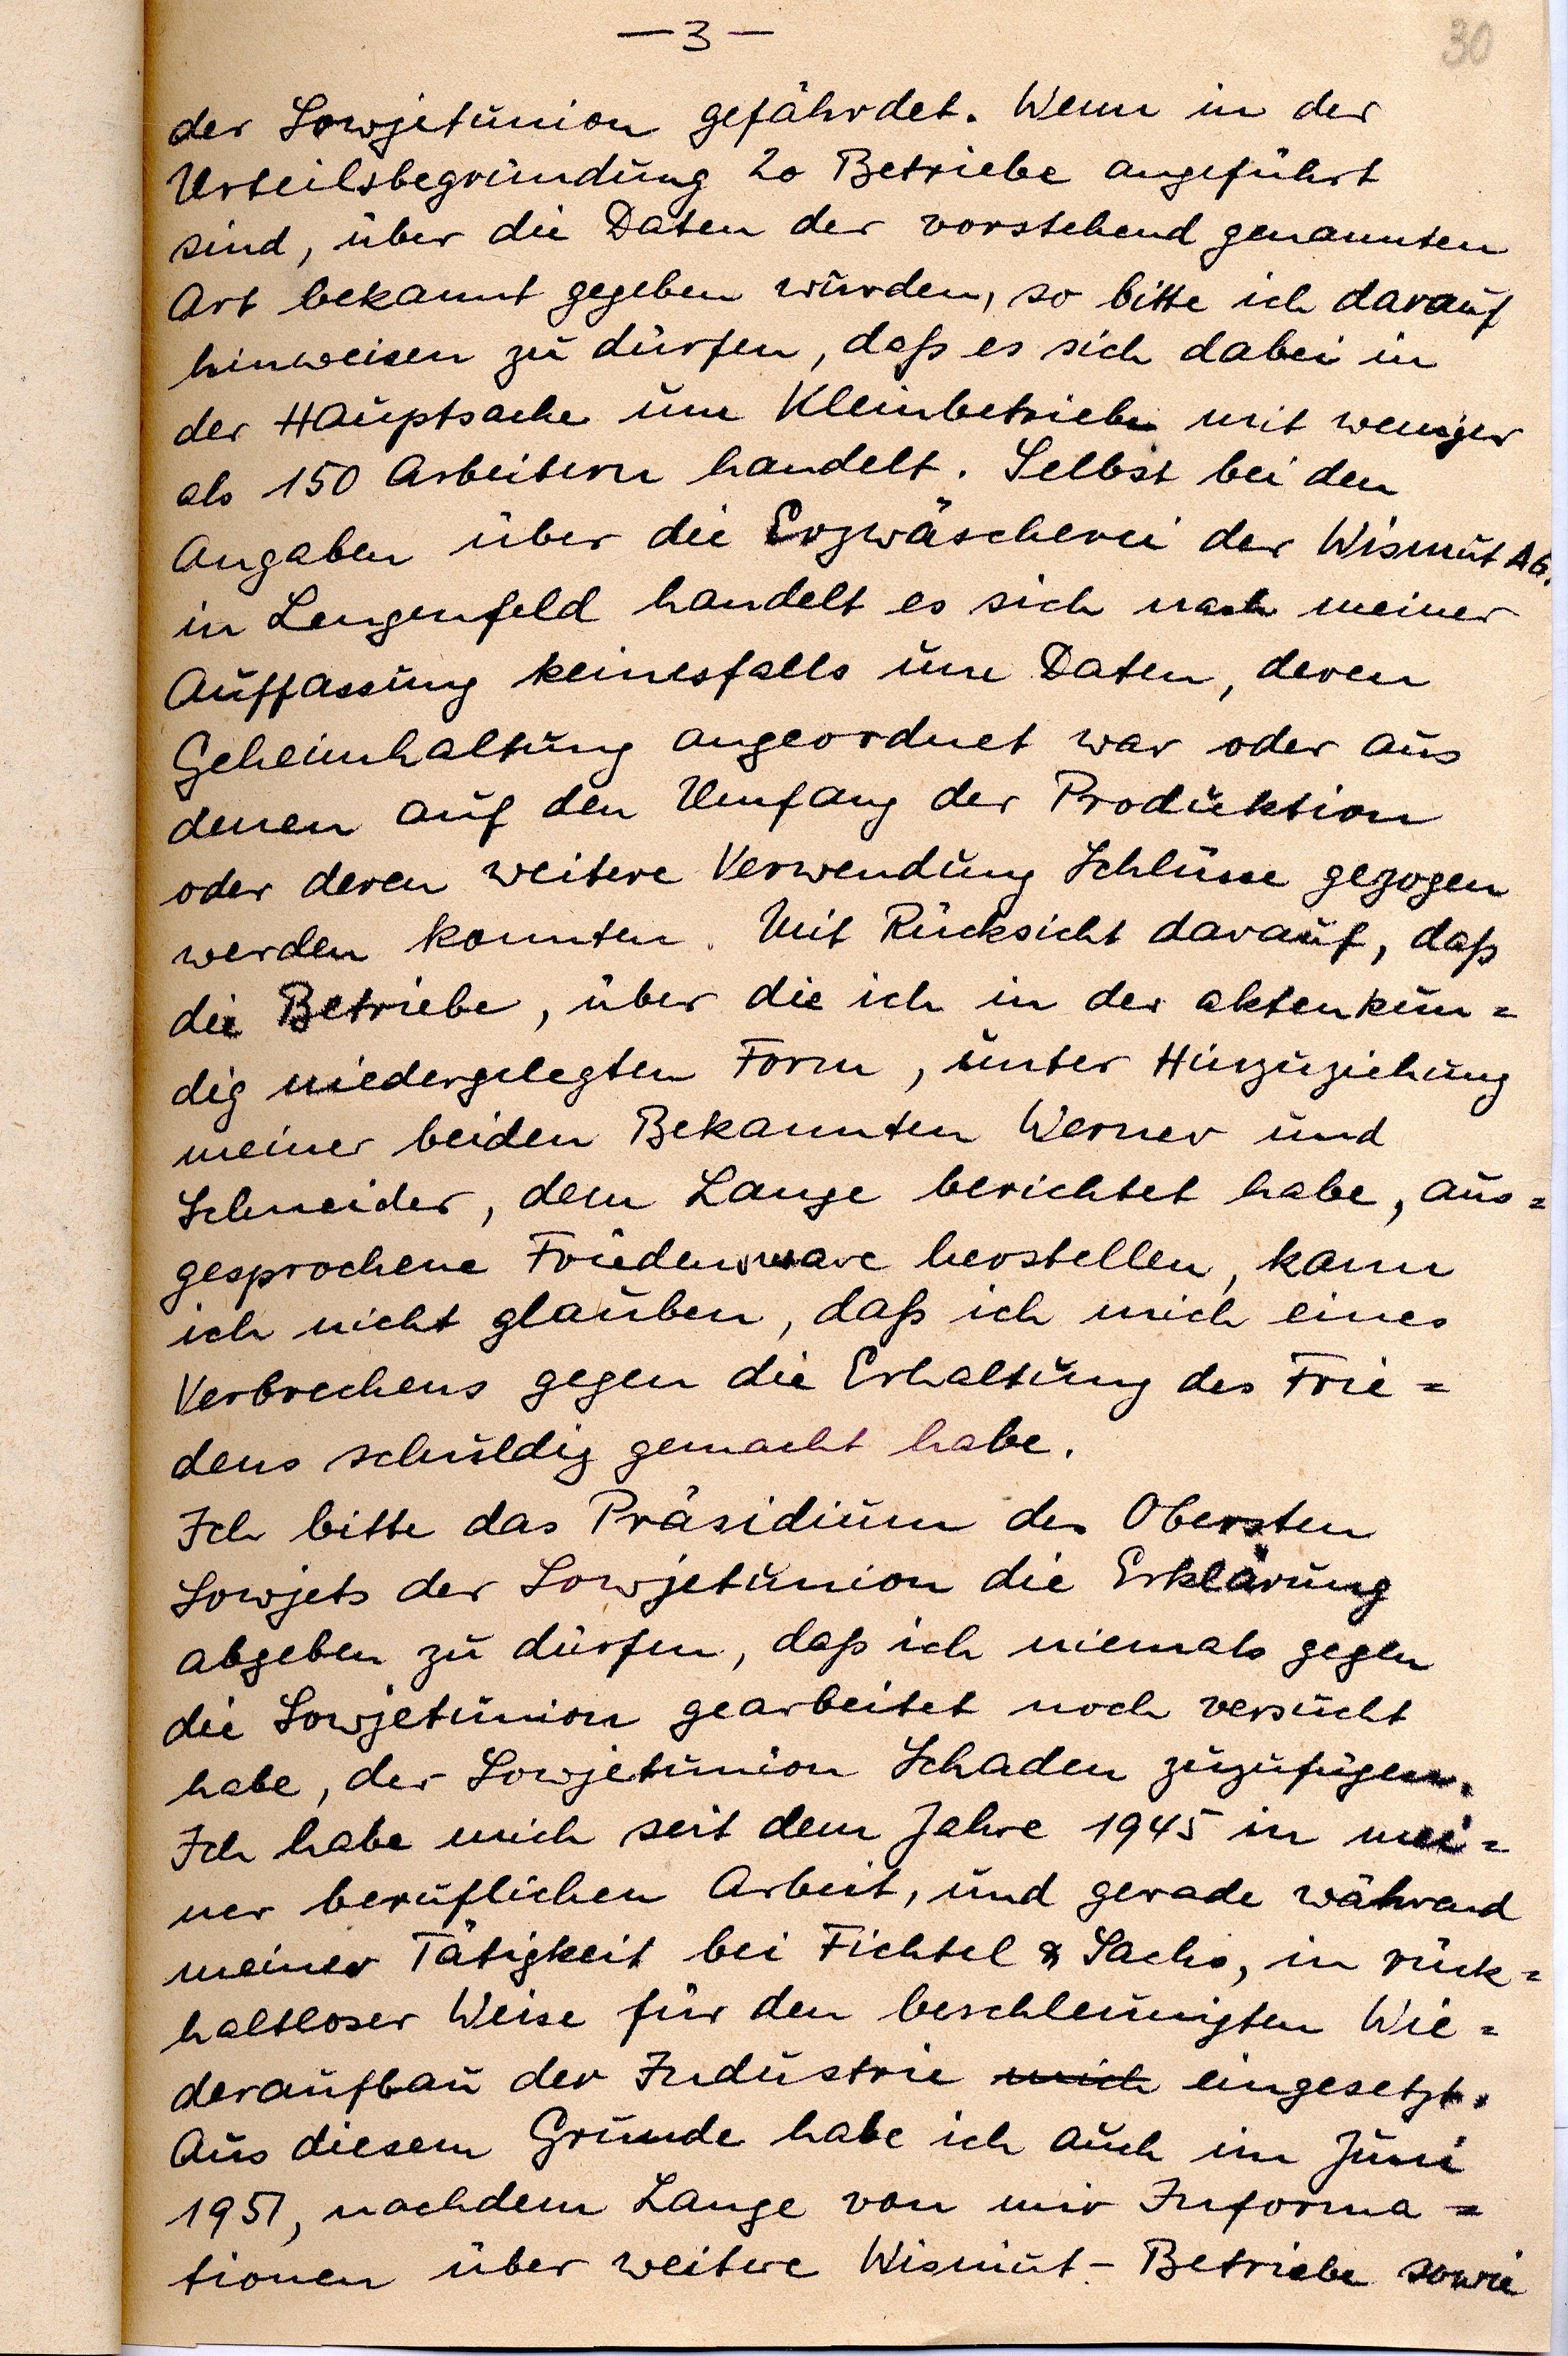 — 3 —
30
der Sowjetunion gefährdet. Wenn in der
Urteilsbegründung 20 Betriebe angeführt
sind, über die Daten der vorstehend genannten
Art bekannt gegeben wurden, so bitte ich darauf
hinweisen zu dürfen, daß es sich dabei in
der Hauptsache um Kleinbetriebe mit weniger
als 150 Arbeitern handelt. Selbst bei den
Angaben über die Erzwäscherei der Wismut AG.
in Lengenfeld handelt es sich nach meiner
Auffassung keinesfalls um Daten, deren
Geheimhaltung angeordnet war oder aus
denen auf den Umfang der Produktion
oder deren weitere Verwendung Schlüsse gezogen
werden konnten. Mit Rücksicht darauf, daß
die Betriebe, über die ich in der aktenkun=
dig niedergelegten Form, unter Hinzuziehung
meiner beiden Bekannten Werner und
Schneider, dem Lange berichtet habe, aus=
gesprochene Friedensware herstellen, kann
ich nicht glauben, daß ich mich eines
Verbrechens gegen die Erhaltung des Frie=
dens schuldig gemacht habe.
Ich bitte das Präsidium des Obersten
Sowjets der Sowjetunion die Erklärung
abgeben zu dürfen, daß ich niemals gegen
die Sowjetunion gearbeitet noch versucht
habe, der Sowjetunion Schaden zuzufügen.
Ich habe mich seit dem Jahre 1945 in mei=
ner beruflichen Arbeit, und gerade während
meiner Tätigkeit bei Fichtel & Sachs, in rück=
haltloser Weise für den beschleunigten Wie=
deraufbau der Industrie mich eingesetzt.
Aus diesem Grunde habe ich auch im Juni
1951, nachdem Lange von mir Informa=
tionen über weitere Wismut-Betriebe sowie